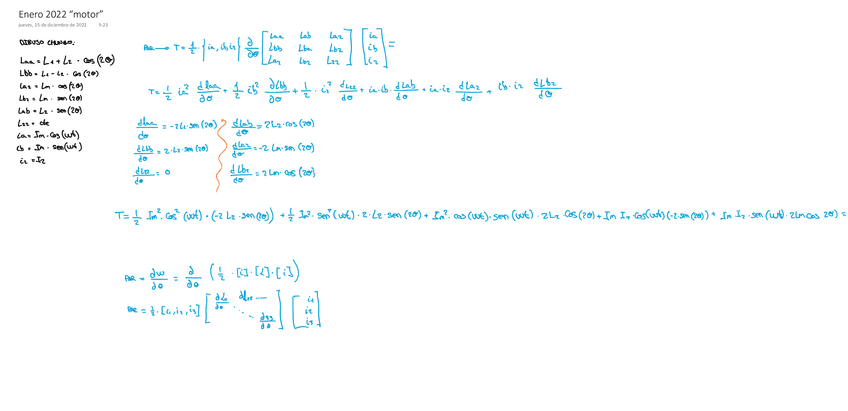 Enero 2022 "motor"
jueves, 15 de diciembre de 2022 9:23
DIBUJO
Laa = L1 + L2 · cos (2θ)
Lbb = L1 - L2 · cos (2θ)
Laz = Lm · cos (2θ)
Lbz = Lm · sen (2θ)
Lab = L2 · sen (2θ)
Lzz = cte
ia = Im · cos (wt)
ib = Im · sen (wt)
iz = Iz
PAR → T = 1/2 · {ia, ib, iz} ∂/∂θ [Laa Lab Laz; Lbb Lba Lbz; Laz Lbz Lzz] [ia; ib; iz] =
T = 1/2 ia² dLaa/dθ + 1/2 ib² dLbb/dθ + 1/2 · iz² dLzz/dθ + ia · ib · dLab/dθ + ia · iz dLaz/dθ + ib · iz dLbz/dθ
dLaa/dθ = -2L2 · sen (2θ) dLab/dθ = 2L2 · cos (2θ)
dLbb/dθ = 2 · L2 · sen (2θ) dLaz/dθ = -2 Lm · sen (2θ)
dLzz/dθ = 0 dLbz/dθ = 2Lm · cos (2θ)
T = 1/2 Im² · cos² (wt) · (-2 L2 · sen(2θ)) + 1/2 Im² · sen² (wt) · 2 · L2 · sen (2θ) + Im² · cos (wt) · sen (wt) · 2L2 · cos (2θ) + Im Iz · cos(wt) (-2 sen(2θ)) + Im Iz · sen (wt) · 2Lm cos 2θ) =
PAR = dw/dθ = ∂/∂θ (1/2 · [i] · [L] · [i])
PAR = 1/2 · [i1, i2, i3] [dL/dθ dL12 — ; · · · ; d33/dθ] [i1; i2; i3]